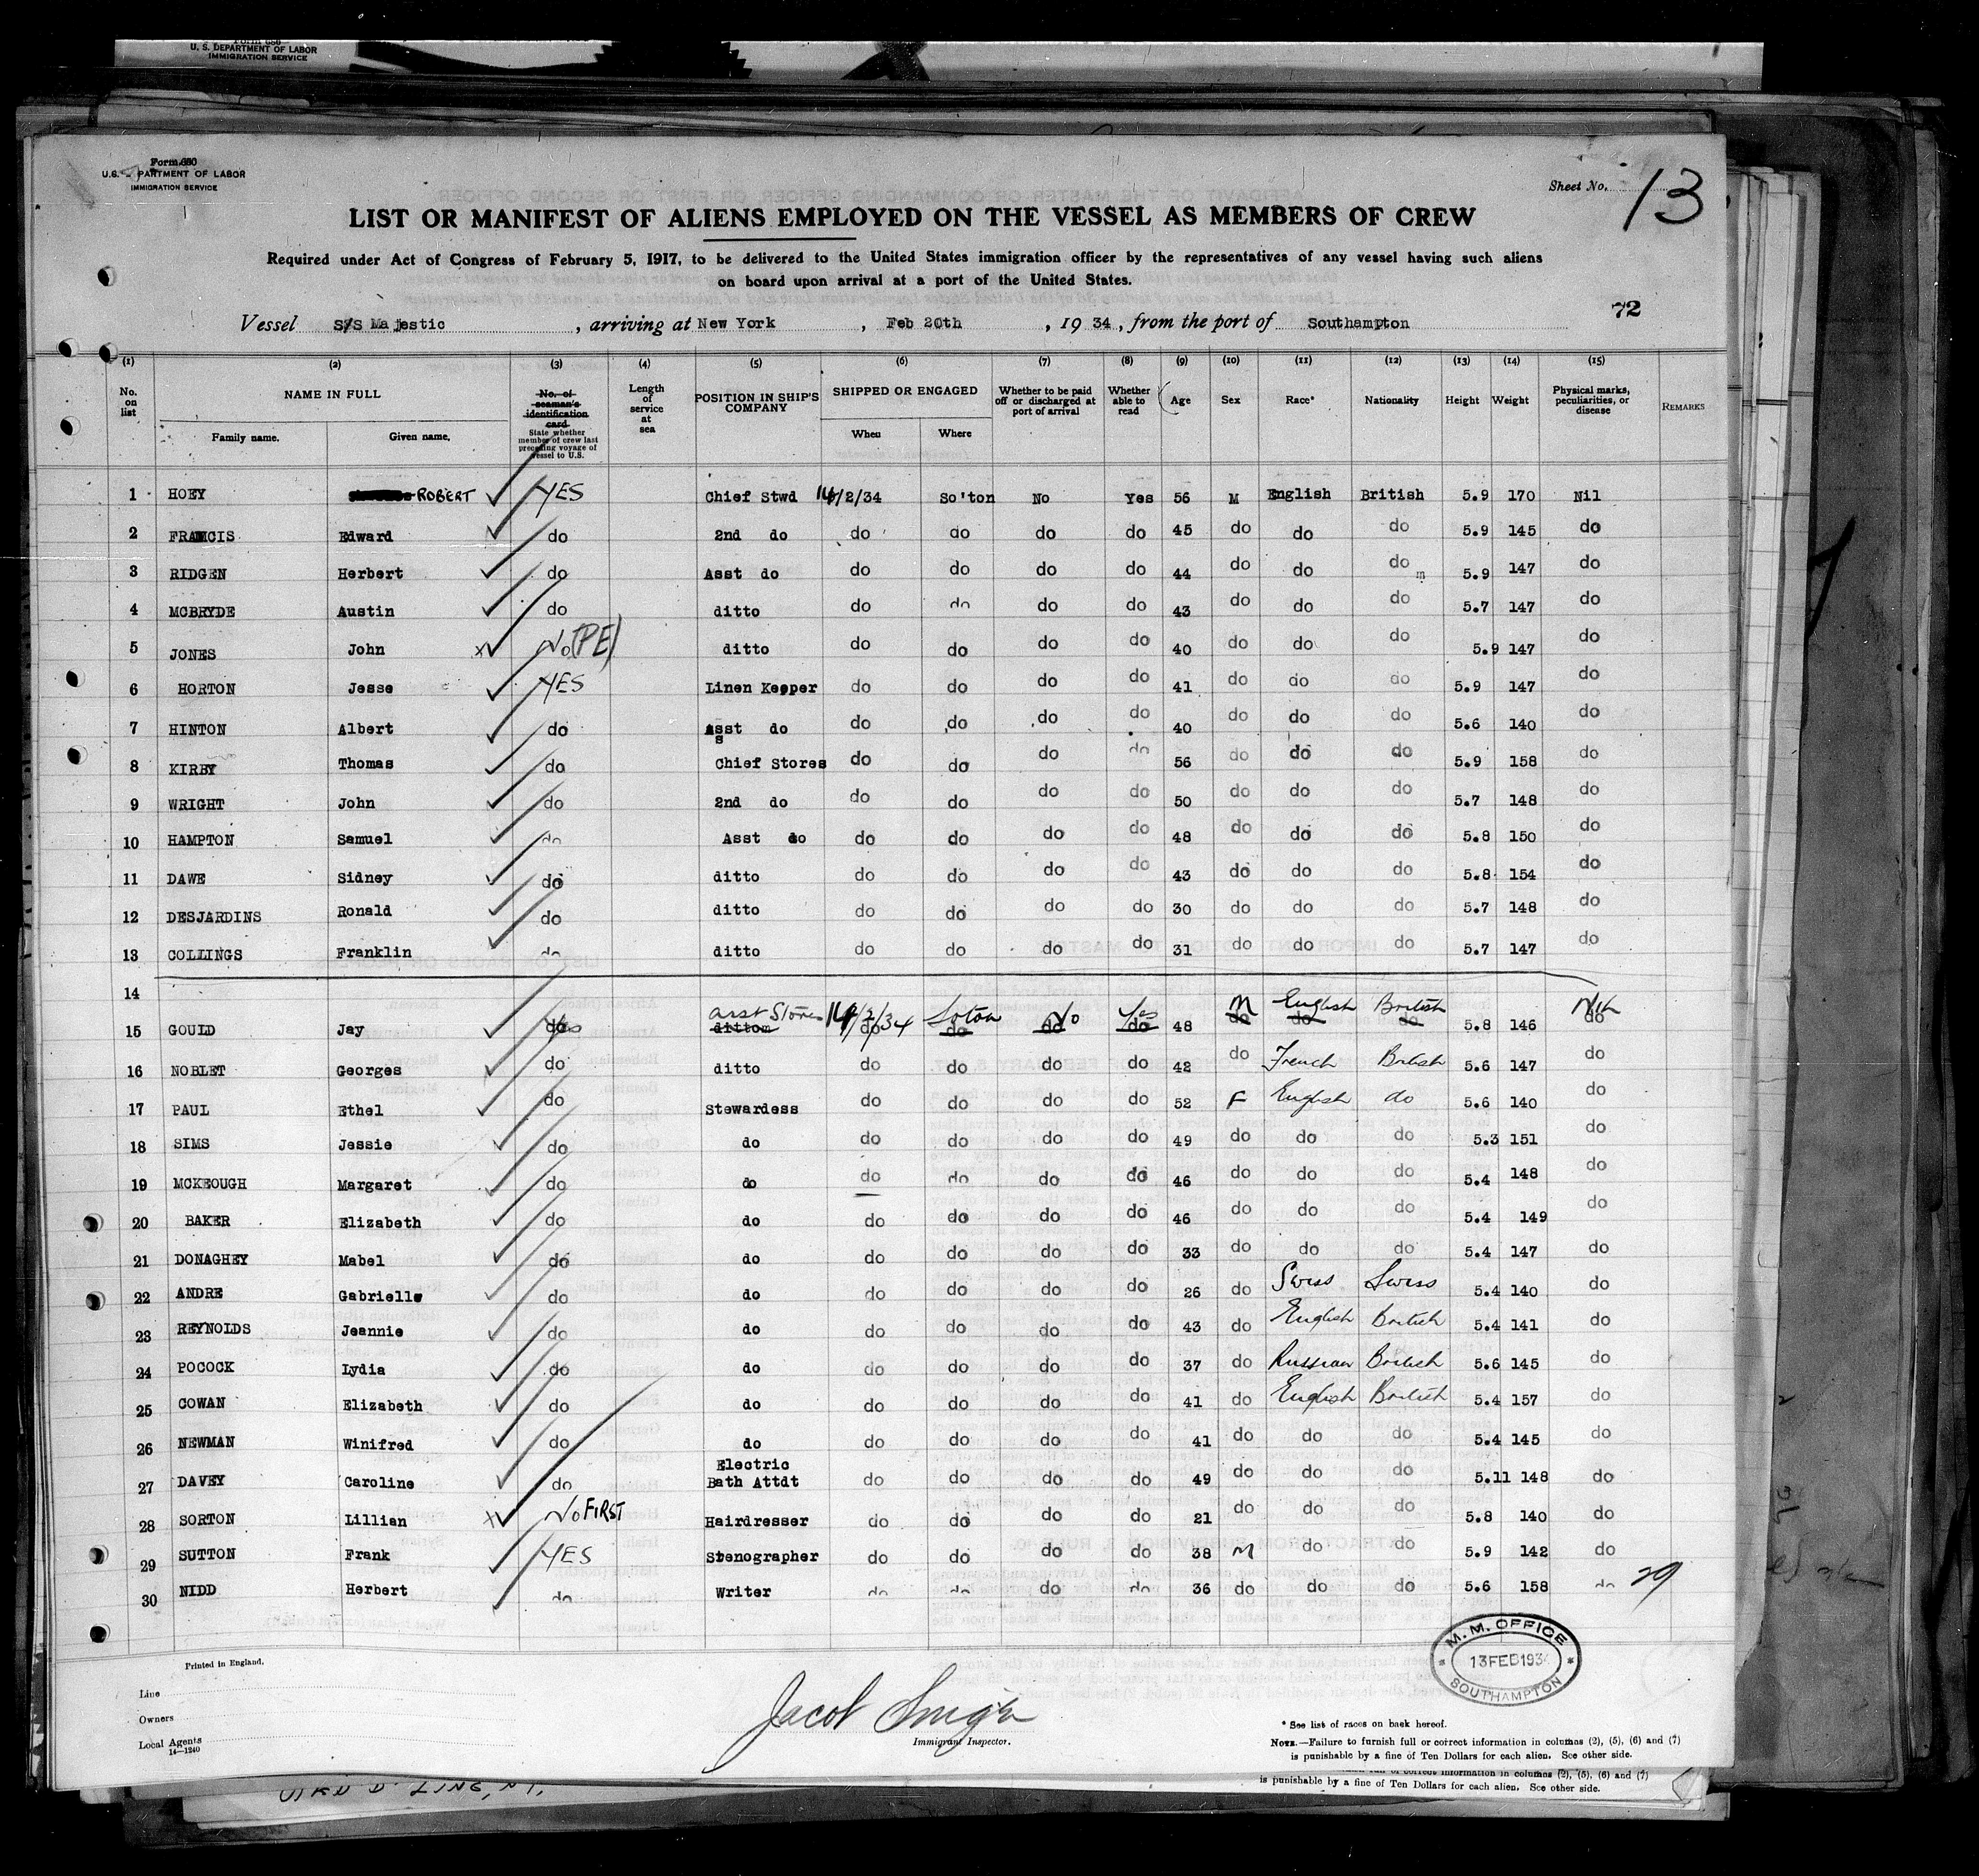 U. S. DEPARTMENT OF LABOR
IMMIGRATION SERVICE
Form 680
U.S. DEPARTMENT OF LABOR
IMMIGRATION SERVICE
Sheet No. 13
LIST OR MANIFEST OF ALIENS EMPLOYED ON THE VESSEL AS MEMBERS OF CREW
Required under Act of Congress of February 5, 1917, to be delivered to the United States immigration officer by the representatives of any vessel having such aliens
on board upon arrival at a port of the United States.
72
Vessel S/S Majestic, arriving at New York, Feb 20th, 1934, from the port of Southampton
(1) (2) (3) (4) (5) (6) (7) (8) (9) (10) (11) (12) (13) (14) (15)
No. on list NAME IN FULL Family name. Given name. No. of seaman's identification card State whether member of crew last preceding voyage of vessel to U.S. Length of service at sea POSITION IN SHIP'S COMPANY SHIPPED OR ENGAGED When Where Whether to be paid off or discharged at port of arrival Whether able to read Age Sex Race* Nationality Height Weight Physical marks, peculiarities, or disease REMARKS
1 HOEY ROBERT YES Chief Stwd 14/2/34 So'ton No Yes 56 M English British 5.9 170 Nil
2 FRANCIS Edward do 2nd do do do do do 45 do do do 5.9 145 do
3 RIDGEN Herbert do Asst do do do do do 44 do do do m 5.9 147 do
4 MCBRYDE Austin do ditto do do do do 43 do do do 5.7 147 do
5 JONES John x No (PE) ditto do do do do 40 do do do 5.9 147 do
6 HORTON Jesse YES Linen Keeper do do do do 41 do do do 5.9 147 do
7 HINTON Albert do Asst do do do do do 40 do do do 5.6 140 do
8 KIRBY Thomas do s Chief Stores do do do do 56 do do do 5.9 158 do
9 WRIGHT John do 2nd do do do do do 50 do do do 5.7 148 do
10 HAMPTON Samuel do Asst do do do do do 48 do do do 5.8 150 do
11 DAWE Sidney do ditto do do do do 43 do do do 5.8 154 do
12 DESJARDINS Ronald do ditto do do do do 30 do do do 5.7 148 do
13 COLLINGS Franklin do ditto do do do do 31 do do do 5.7 147 do
14
15 GOULD Jay Yes asst Stores 14/2/34 Soton No Yes 48 M English British 5.8 146 Nil
16 NOBLET Georges do ditto do do do do 42 do French British 5.6 147 do
17 PAUL Ethel do Stewardess do do do do 52 F English do 5.6 140 do
18 SIMS Jessie do do do do do do 49 do do do 5.3 151 do
19 MCKEOUGH Margaret do do do do do do 46 do do do 5.4 148 do
20 BAKER Elizabeth do do do do do do 46 do do do 5.4 149 do
21 DONAGHEY Mabel do do do do do do 33 do do do 5.4 147 do
22 ANDRE Gabrielle do do do do do do 26 do Swiss Swiss 5.4 140 do
23 REYNOLDS Jeannie do do do do do do 43 do English British 5.4 141 do
24 POCOCK Lydia do do do do do do 37 do Russian British 5.6 145 do
25 COWAN Elizabeth do do do do do do 41 do English British 5.4 157 do
26 NEWMAN Winifred do do do do do do 41 do do do 5.4 145 do
27 DAVEY Caroline do Electric Bath Attdt do do do do 49 do do do 5.11 148 do
28 SORTON Lillian x No FIRST Hairdresser do do do do 21 do do do 5.8 140 do
29 SUTTON Frank YES Stenographer do do do do 38 M do do 5.9 142 do
30 NIDD Herbert do Writer do do do do 36 do do do 5.6 158 do 29
M. M. OFFICE
13 FEB 1934
SOUTHAMPTON
Printed in England.
Line
Owners
Local Agents
14—1240
Jacob
Immigrant Inspector.
* See list of races on back hereof.
NOTE.—Failure to furnish full or correct information in columns (2), (5), (6) and (7)
is punishable by a fine of Ten Dollars for each alien. See other side.
correct information in columns (2), (5), (6) and (7)
is punishable by a fine of Ten Dollars for each alien. See other side.